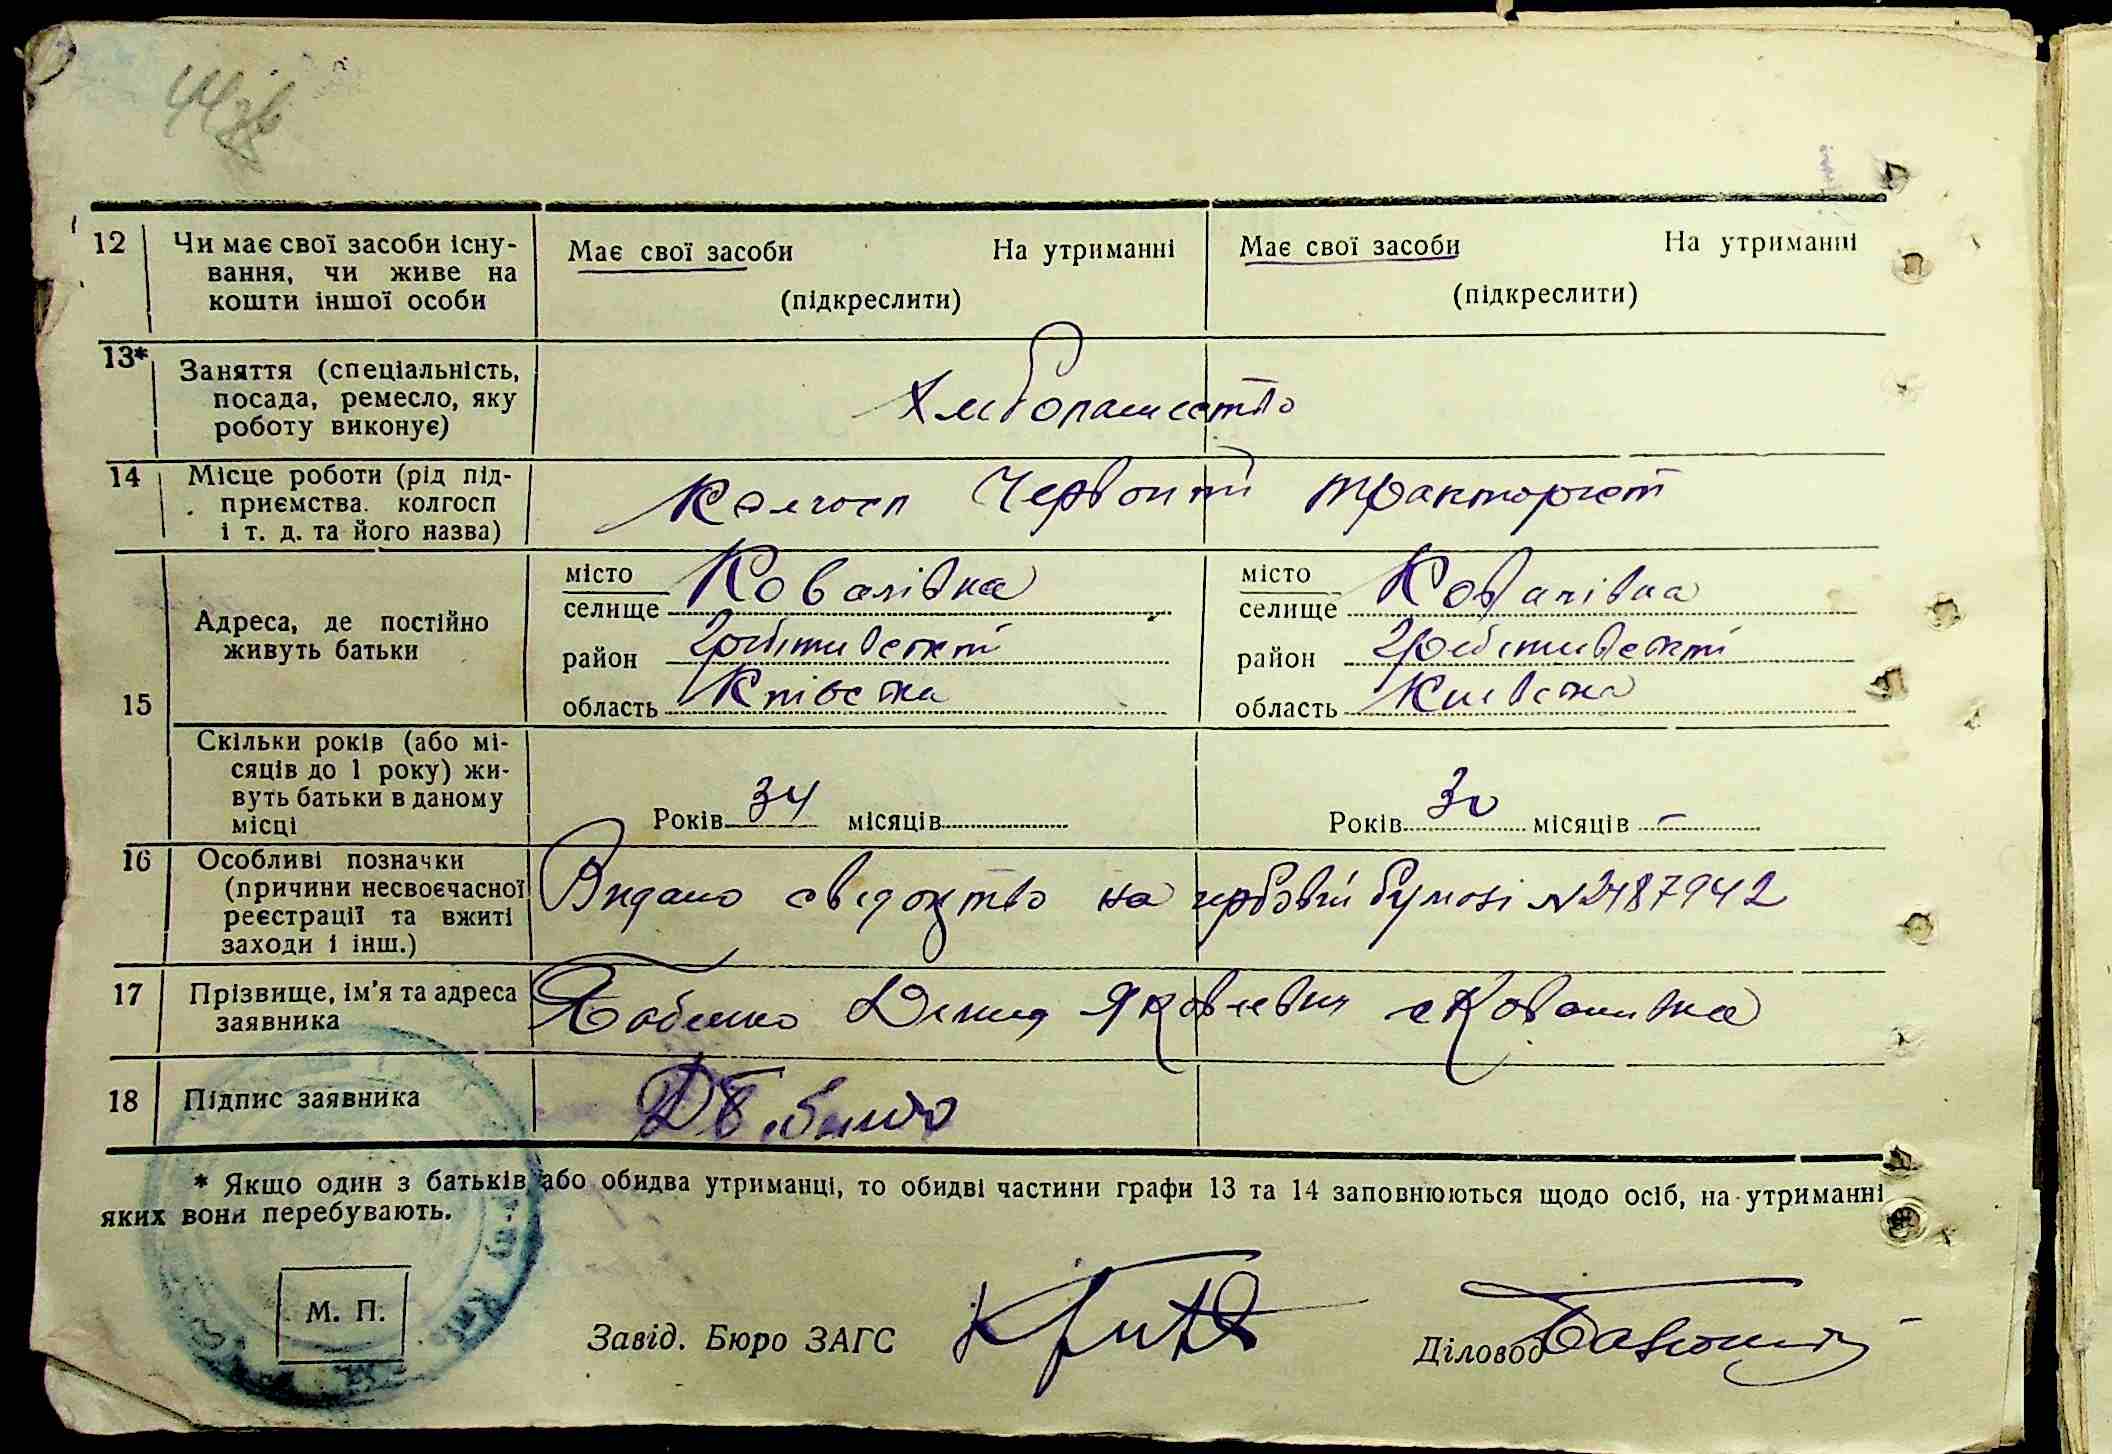 44зв
12 Чи має свої засоби існу-
вання, чи живе на
кошти іншої особи
Має свої засоби На утриманні
(підкреслити)
Має свої засоби На утриманні
(підкреслити)
13* Заняття (спеціальність,
посада, ремесло, яку
роботу виконує)
Хліборашество
14 Місце роботи (рід під-
приємства. колгосп
і т. д. та його назва)
Колгосп Червоний тракторист
15
Адреса, де постійно
живуть батьки
місто
селище Ковалівка
район
область Київська
місто
селище Ковалівка
район
область Київска
Скільки років (або мі-
сяців до 1 року) жи-
вуть батьки в даному
місці
Років 34 місяців
Років 30 місяців –
16 Особливі позначки
(причини несвоєчасної
реєстрації та вжиті
заходи і інш.)
Видано на гербовій бумозі №
17 Прізвище, ім'я та адреса
заявника
Бабенко Демид Яковлевич с Коваливка
18 Підпис заявника
* Якщо один з батьків або обидва утриманці, то обидві частини графи 13 та 14 заповнюються щодо осіб, на утриманні
яких вони перебувають.
М. П.
Завід. Бюро ЗАГС
Діловод